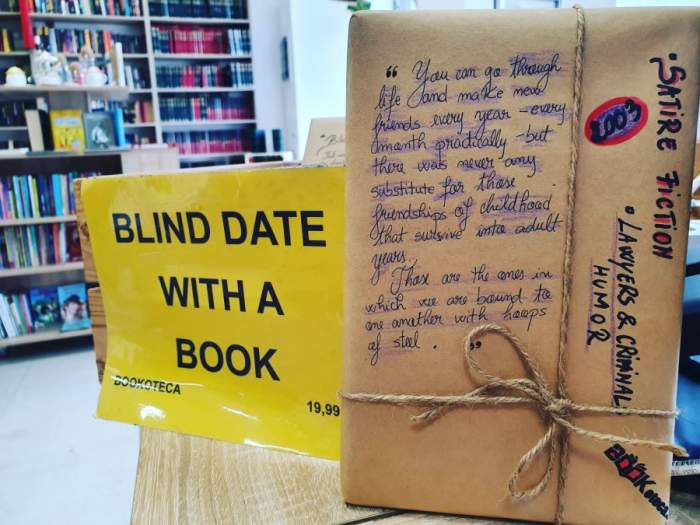 BLIND DATE
WITH A
BOOK
BOOKOTECA
19,99
" You can go through
life and make new
friends every year - every
month practically - but
there was never any
substitute for those
friendships of childhood
that survive into adult
years.
Those are the ones in
which we are bound to
one another with hoops
of steel. "
• SATIRE FICTION
2003
• LAWYERS & CRIMINALS
HUMOR